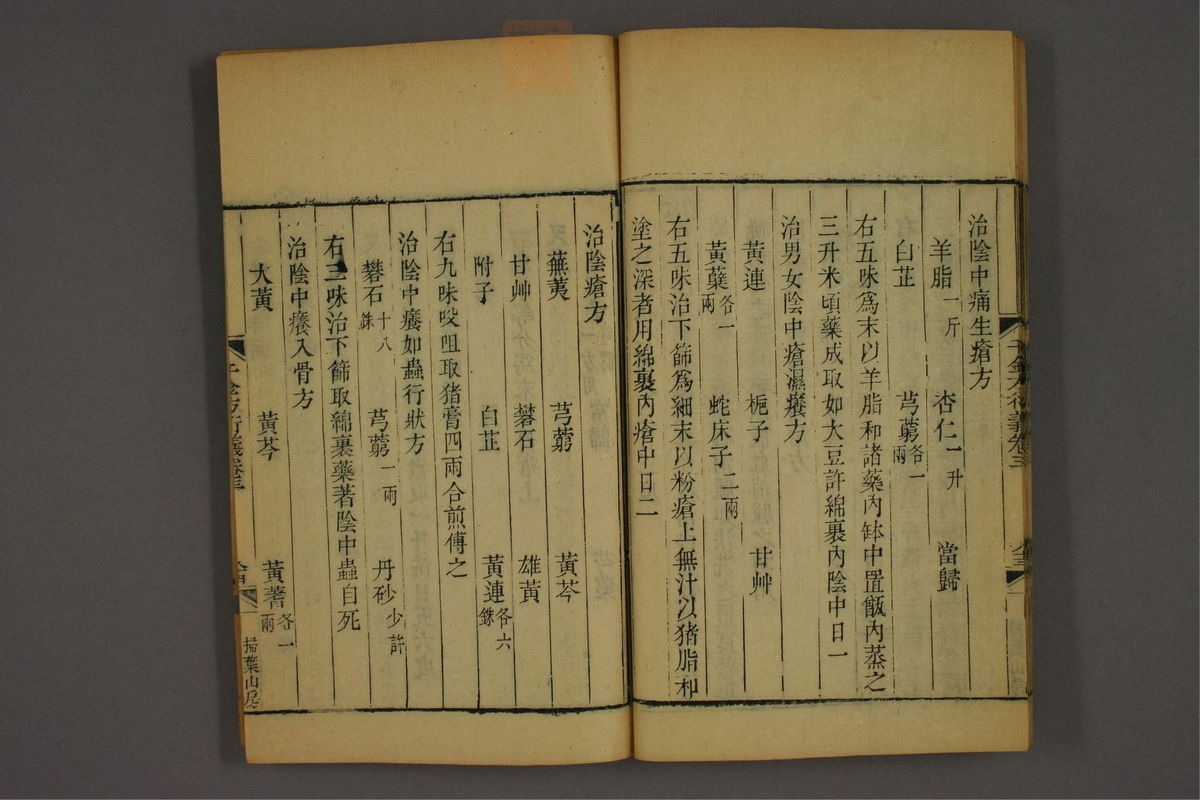 治陰中痛生瘡方
羊脂一斤 杏仁一升 當歸
白芷 芎藭各一兩
右五味爲末以羊脂和諸藥內缽中置飯內蒸之
三升米頃藥成取如大豆許綿裹內陰中日一
治男女陰中瘡濕癢方
黃連 梔子 甘艸
黃蘗各一兩 蛇床子二兩
右五味治下篩爲細末以粉瘡上無汁以猪脂和
塗之深者用綿裹內瘡中日二
治陰瘡方
蕪荑 芎藭 黃芩
甘艸 礬石 雄黃
附子 白芷 黃連各六銖
右九味㕮咀取猪膏四兩合煎傅之
治陰中癢如蟲行狀方
礬石十八銖 芎藭一兩 丹砂少許
右三味治下篩取綿裹藥著陰中蟲自死
治陰中癢入骨方
大黃 黃芩 黃耆各一兩
千金方衍義卷三
掃葉山房